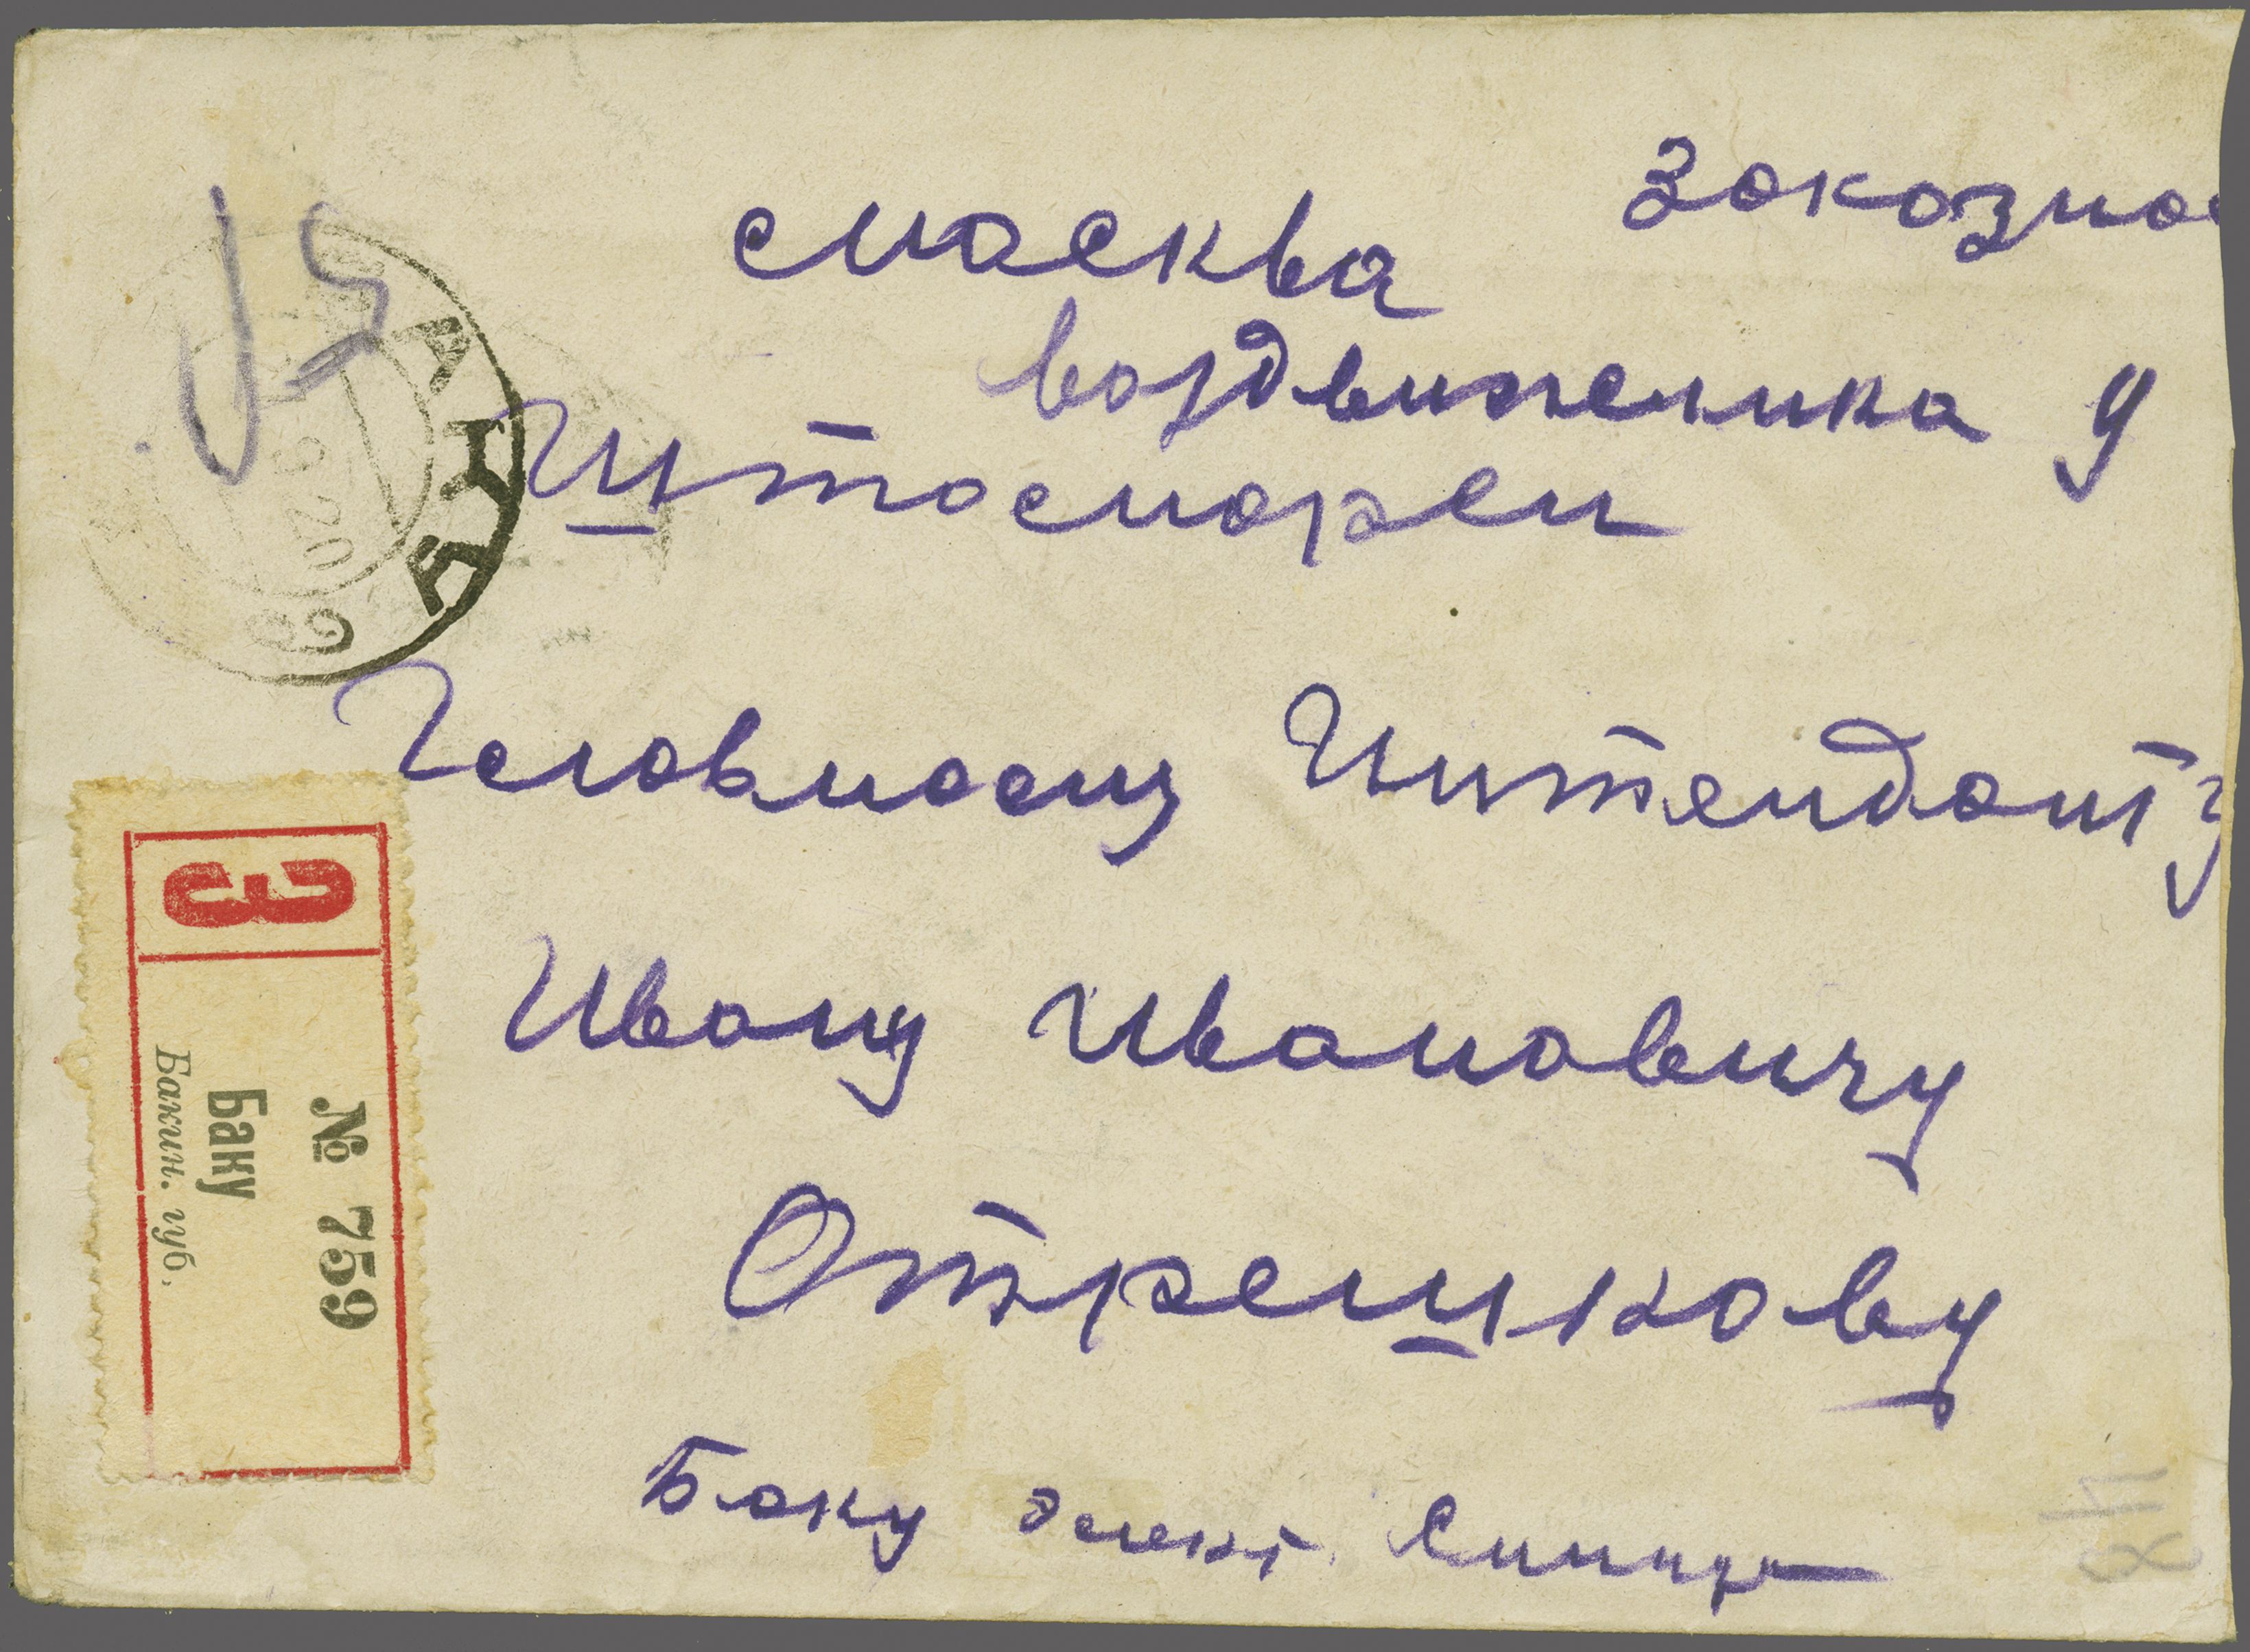 Заказное
Москва
Воздвиженка у
Штосморен
Главному Интенданту
Ивану Ивановичу
Отрешкову
Баку элект.
З
№ 759
Баку
Бакин. губ.
9 20